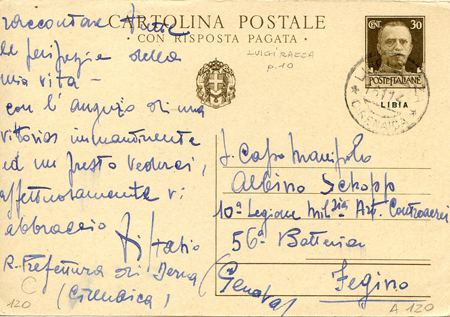 CARTOLINA POSTALE
CON RISPOSTA PAGATA
LUIGI RAZZA
p. 10
CENT. 30
POSTE ITALIANE
LIBIA
CIRENAICA
raccontare tutte
le peripezie della
mia vita -
con l'augurio di una
vittoria imminente
ed un presto vederci,
affettuosamente vi
abbraccio
R. Prefettura di Derna
(Cirenaica)
C
120
Capo Manipolo
Albino
10ª Legione Milizia Art. Controaerei
56ª Batteria
(Genova)
Fegino
A 120